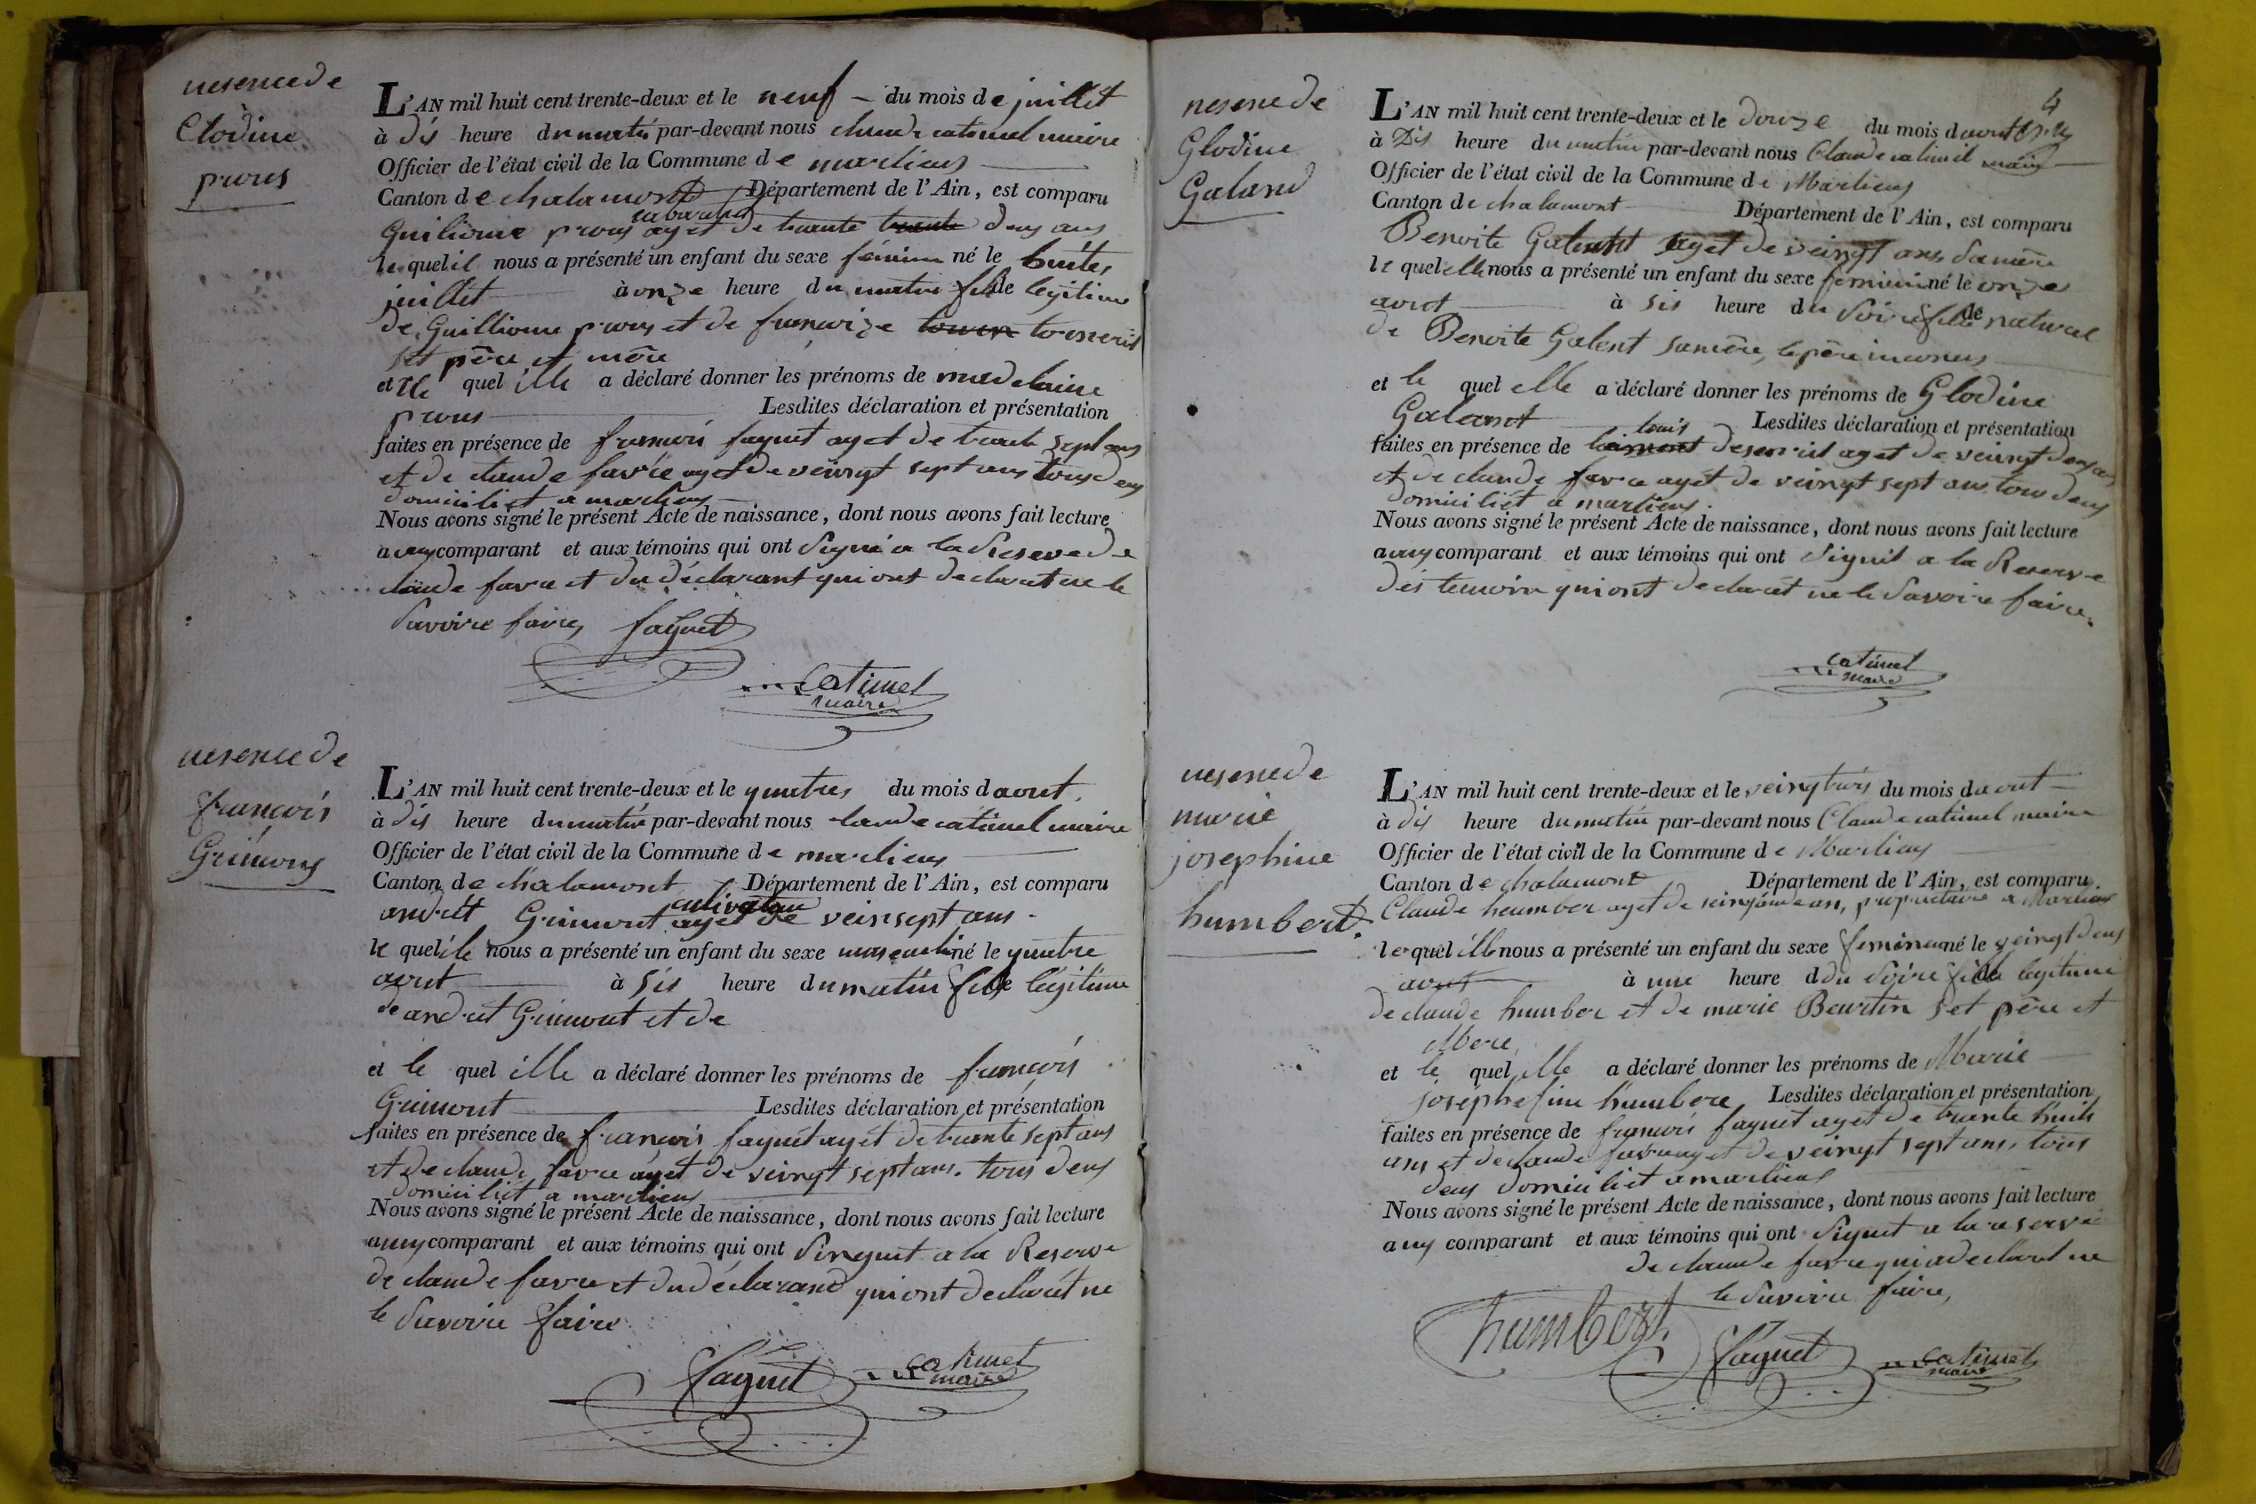 nesence de
Clodine
prous
L'AN mil huit cent trente-deux et le neuf du mois de juillet
à dis heure du matin par-devant nous claude catimel maire
Officier de l'état civil de la Commune de marlieus
Canton de chalamont Département de l'Ain, est comparu
Guilioume prous ayet de trente trente deus ans
le quel il nous a présenté un enfant du sexe féminin né le huites
juillet à onze heure du matin fils de légitime
de Guillioume prous et de francoize
set père et mère
et le quel ille a déclaré donner les prénoms de medelaine
prous Lesdites déclaration et présentation
faites en présence de francois faguet ayet de trente sept ans
et de claude favre ayet de veingt sept ans tous deus
domiciliet a marlieus
Nous avons signé le présent Acte de naissance, dont nous avons fait lecture
auy comparant et aux témoins qui ont signé a la Reserve de
claude favre et du déclarant qui ont declaret ne le
savoire faire, faguet
catimel
maire
nesence de
francois
Grimons
L'AN mil huit cent trente-deux et le quatres du mois d aout
à dis heure du matin par-devant nous claude catimel maire
Officier de l'état civil de la Commune de marlieus
Canton de chalamont Département de l'Ain, est comparu
andrét Grimont cultivateur ayet de veinsept ans
le quel ile nous a présenté un enfant du sexe masculin né le quatre
aout à sis heure du matin fils de légitime
de andret Grimont et de
et le quel ille a déclaré donner les prénoms de francois
Grimont Lesdites déclaration et présentation
faites en présence de francois faguet ayét de trente sept ans
et de claude favre ayet de veingt sept ans. tous deus
domiciliet a marlieus
Nous avons signé le présent Acte de naissance, dont nous avons fait lecture
auy comparant et aux témoins qui ont singnet a la Reserve
de claude favre et du déclarand qui ont declarét ne
le savoire faire
faguet catimel
maire
4
nesene de
Glodine
Galand
L'AN mil huit cent trente-deux et le douze du mois d aout
à Dis heure du matin par-devant nous Claude catimel maire
Officier de l'état civil de la Commune de Marlieus
Canton de chalamont Département de l'Ain, est comparu
Benoite Galent ayet de veingt ans samère
le quel elle nous a présenté un enfant du sexe feminin né le onze
aout à sis heure du soire fille de naturel
de Benoite Galent samère, le père inconeus
et le quel elle a déclaré donner les prénoms de Glodine
Galant Lesdites déclaration et présentation
faites en présence de louis ayet de veingt deus ans
et de claude favre ayét de veingt sept ans tous deus
domiciliét a marlieus.
Nous avons signé le présent Acte de naissance, dont nous avons fait lecture
auy comparant et aux témoins qui ont signet a la Reserve
des temoin qui ont declarét ne le savoire faire.
catimel
maire
nesene de
marie
josephine
humbert.
L'AN mil huit cent trente-deux et le veingtrois du mois d aout
à dis heure du matin par-devant nous Claude catimel maire
Officier de l'état civil de la Commune de Marlieus
Canton de chalamont Département de l'Ain, est comparu
Claude heumber ayet de ans, propriétaire a Marlieus
le quel ille nous a présenté un enfant du sexe feminin né le veingt deus
aout à une heure d du soire fille de legitime
de claude humber et de marie Beurtin set père et
Mere
et le quel ille a déclaré donner les prénoms de Marie
josephefine humbere Lesdites déclaration et présentation
faites en présence de francois faguet ayet de trente huit
ans et de claude favre ayet de veingt sept ans, tous
deus domiciliet a marlieus
Nous avons signé le présent Acte de naissance, dont nous avons fait lecture
auy comparant et aux témoins qui ont signet a la reserve
de claude favre qui a declaret ne
le savoire faire,
humbert faguet catimel
maire